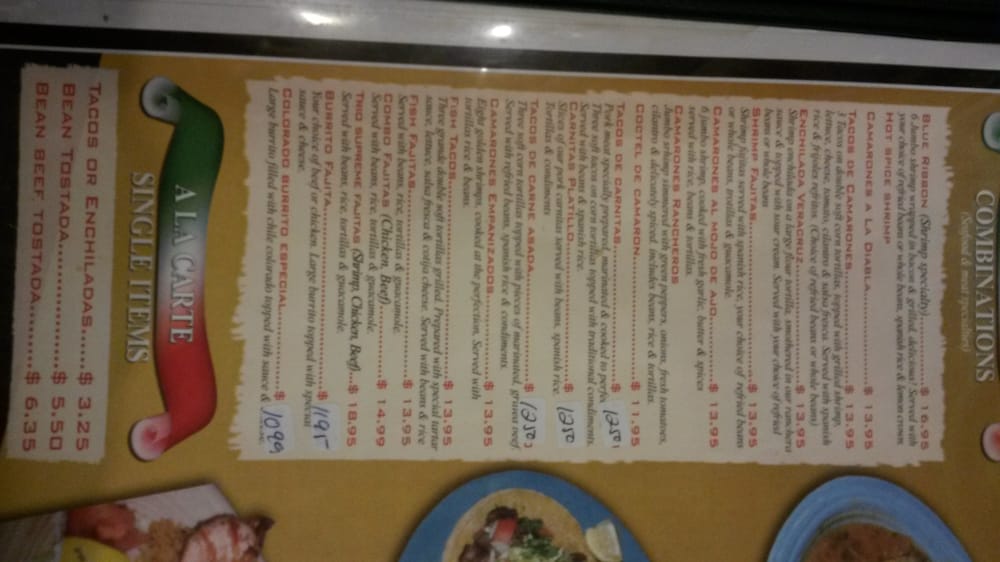 COMBINATIONS
(Seafood & meat specialties)
BLUE RIBBON (Shrimp specialty)........$ 16.95
6 Jumbo shrimp wrapped in bacon & grilled, delicious! Served with
your choice of refried beans or whole beans, spanish rice & lemon crown.
HOT SPICE SHRIMP
CAMARONES A LA DIABLA........$ 13.95
TACOS DE CAMARONES........$ 13.95
Tacos on double soft corn tortillas, topped with grilled shrimp,
lettuce, cheese, tomato, cilantro & salsa fresca. Served with spanish
rice & frijoles refritos. (Choice of refried beans or whole beans)
ENCHILADA VERACRUZ........$ 13.95
Shrimp enchilada on a large flour tortilla, smothered in our ranchera
sauce & topped with sour cream. Served with your choice of refried
beans or whole beans
SHRIMP FAJITAS........$ 13.95
Shrimp fajitas served with spanish rice, your choice of refried beans
or whole beans, tortillas & guacamole.
CAMARONES AL MOJO DE AJO...$ 13.95
6 jumbo shrimp, cooked with fresh garlic, butter & spices
served with rice, beans & tortillas.
CAMARONES RANCHEROS
Jumbo shrimp simmered with green peppers, onions, fresh tomatoes,
cilantro & delicately spiced, includes beans, rice & tortillas.
COCTEL DE CAMARON........$ 11.95
TACOS DE CARNITAS........$ 1250
Pork meat specially prepared, marinated & cooked to perfection.
Three soft tacos on corn tortillas, topped with traditional condiments.
Served with beans & spanish rice.
CARNITAS PLATILLO........$ 1250
Slices of our pork carnitas served with beans, spanish rice,
Tortillas & condiments.
TACOS DE CARNE ASADA........$ 1250
Three soft corn tortillas topped with pieces of marinated, grilled beef.
Served with refried beans, spanish rice & condiments.
CAMARONES EMPANIZADOS $ 13.95
Eight golden shrimps, cooked at the perfection. Served with
tortillas rice & beans.
FISH TACOS........$ 13.95
Three grande double soft tortillas grilled. Prepared with special tartar
sauce, lettuce, salsa fresca & cotija cheese. Served with beans & rice
FISH FAJITAS........$ 13.95
Served with beans, rice, tortilla & guacamole.
COMBO FAJITAS (Chicken, Beef)....$ 14.99
Served with beans, rice, tortillas & guacamole.
TRIO SUPREME FAJITAS (Shrimp, Chicken, Beef)...$ 18.95
Served with beans, rice, tortillas & guacamole.
BURRITO FAJITA........$ 1195
Your choice of beef or chicken. Large burrito topped with special
sauce & cheese.
COLORADO BURRITO ESPECIAL........$ 1099
Large burrito filled with chile colorado topped with sauce &
A LA CARTE
SINGLE ITEMS
TACOS OR ENCHILADAS....$ 3.25
BEAN TOSTADA........$ 5.50
BEAN BEEF TOSTADA......$ 6.35